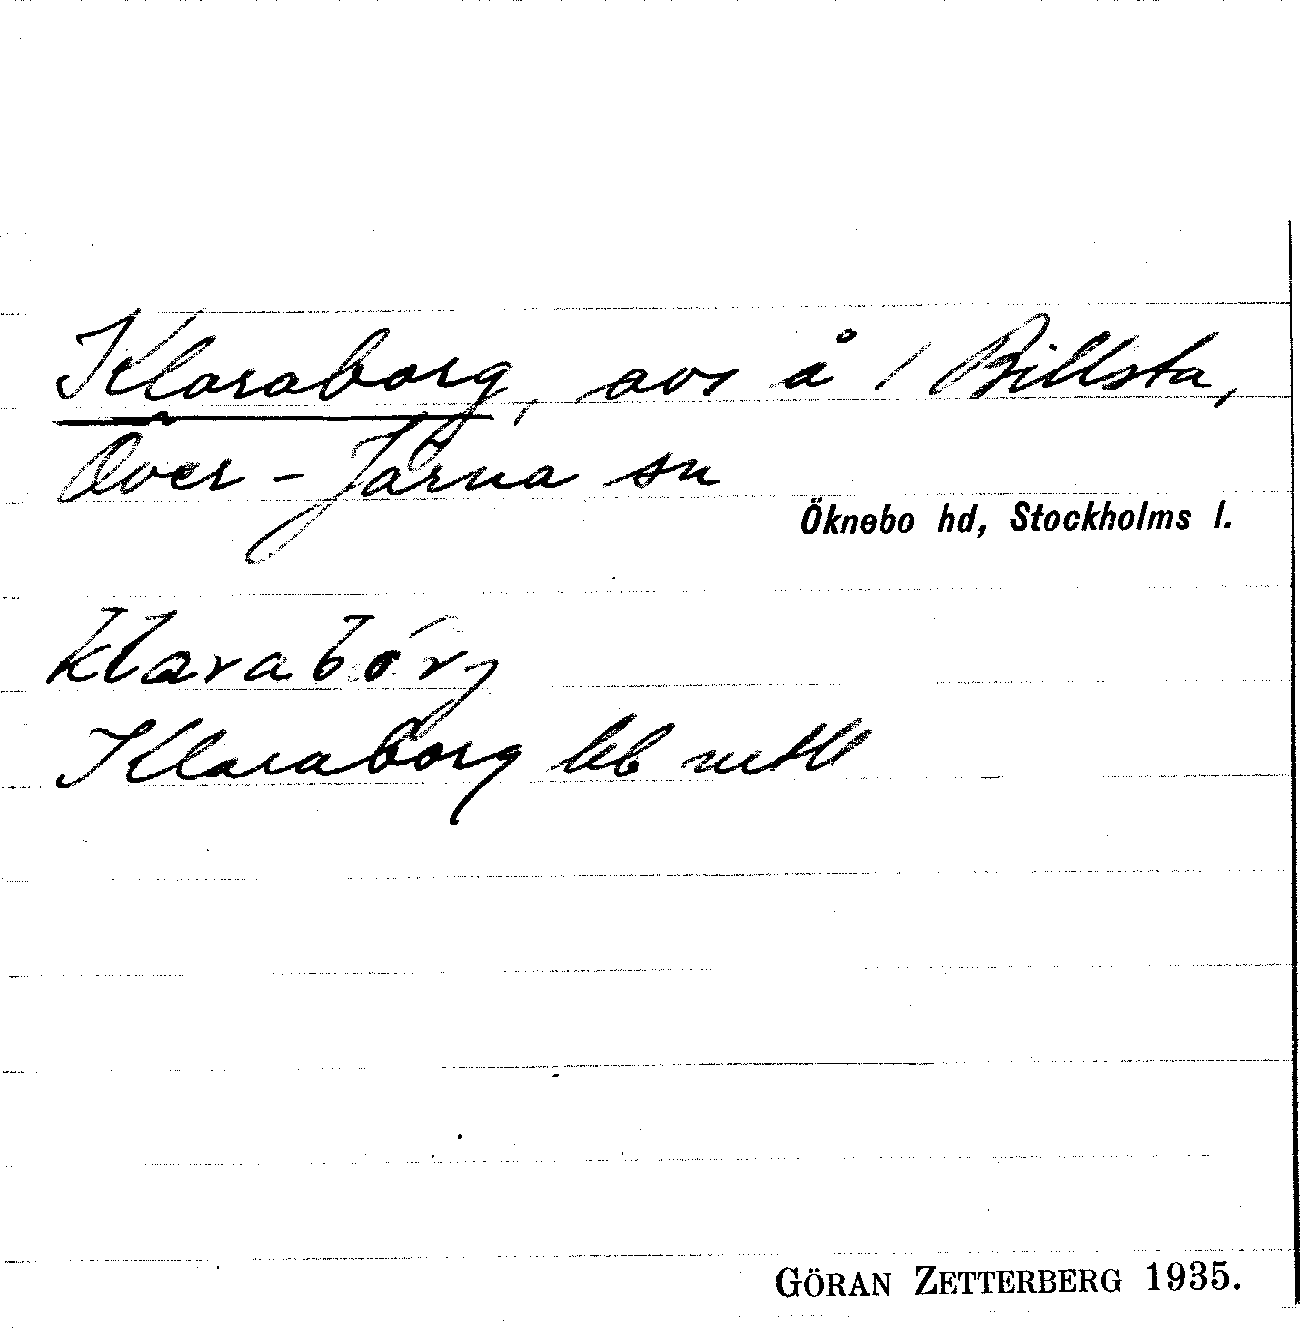 Klaraborg, avs å 1 Billsta,
Över-Järna sn
Öknebo hd, Stockholms l.
klarabórj
Klaraborg lib
GÖRAN ZETTERBERG 1935.